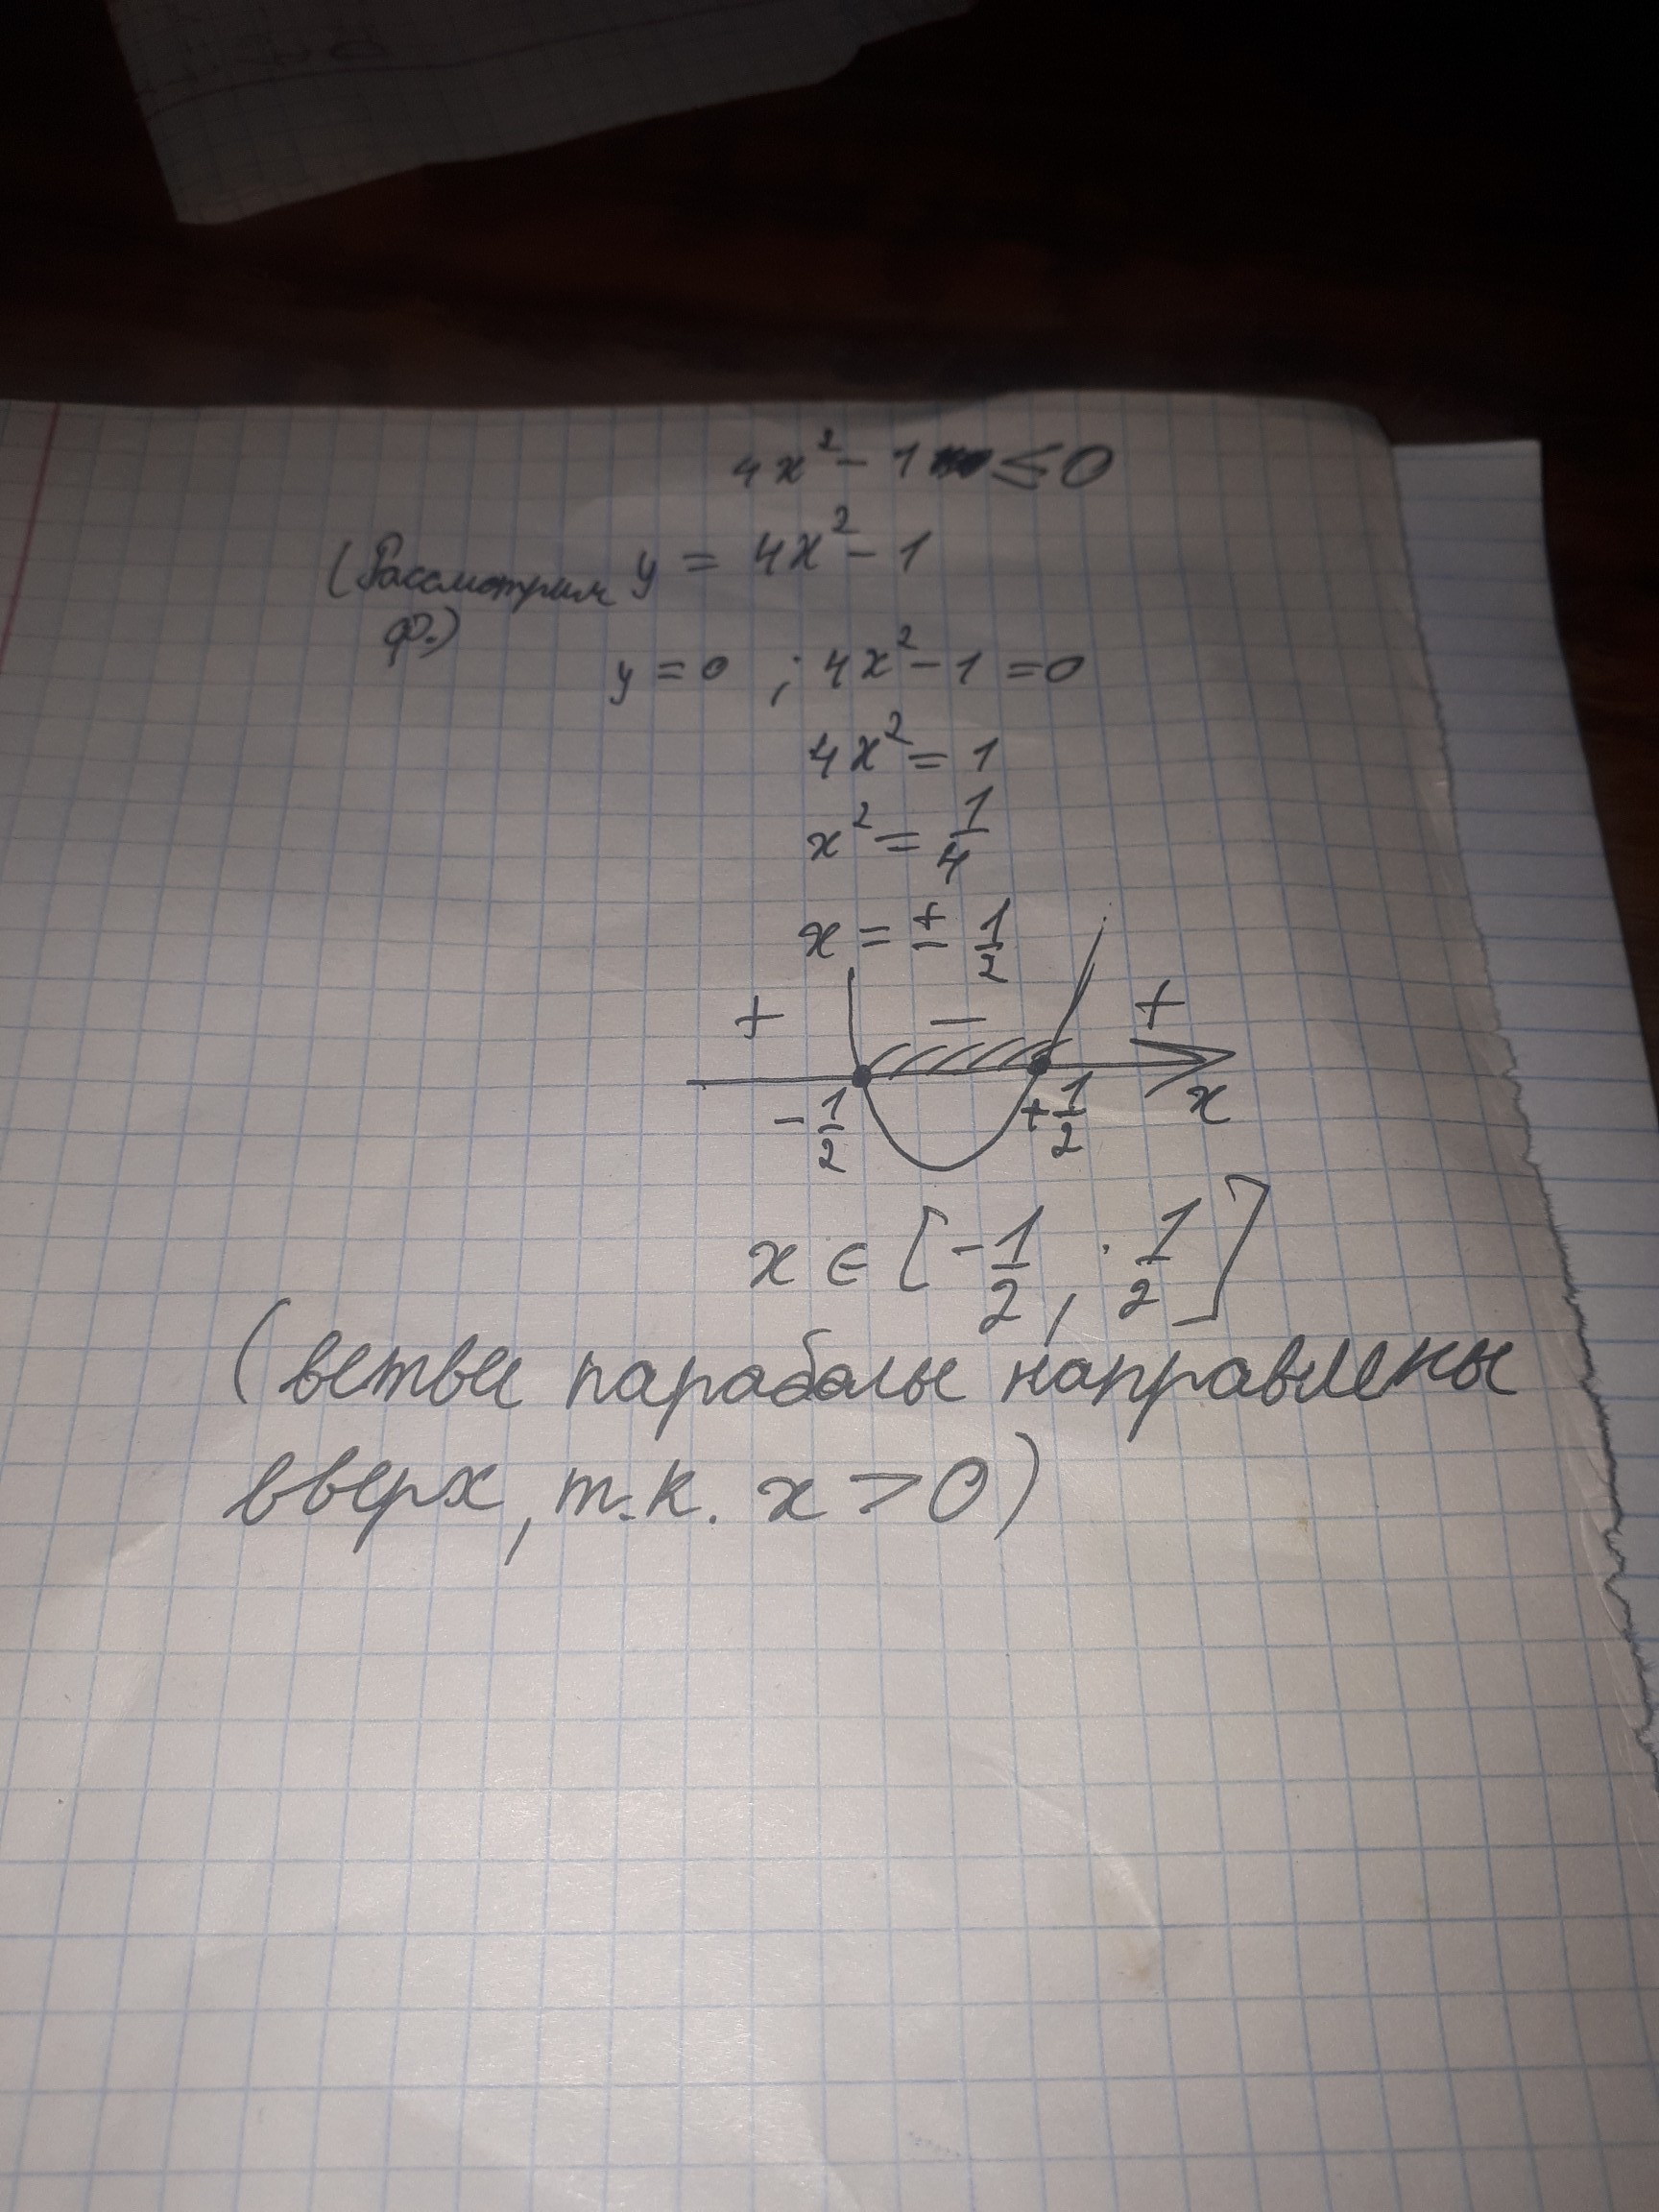 4x² - 1 ≤ 0
(Рассмотрим y = 4x² - 1
ф.)
y = 0 ; 4x² - 1 = 0
4x² = 1
x² = 1/4
x = ± 1/2
+ − +
-1/2 +1/2 x
x ∈ [-1/2, 1/2]
(ветви параболы направлены
вверх, т.к. x > 0)